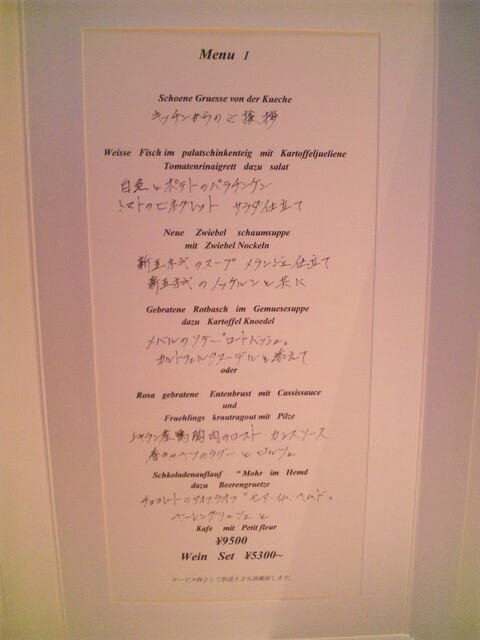 Menu I
Schoene Gruesse von der Kueche
キッチンからのご挨拶
Weisse Fisch im palatschinkenteig mit Kartoffeljueliene
Tomatenrinaigrett dazu salat
白魚とポテトのパラチンケン
トマトのビネグレット サラダ仕立て
Neue Zwiebel schaumsuppe
mit Zwiebel Nockeln
新玉ネギのスープ メランジェ仕立て
新玉ネギのノッケルンと共に
Gebratene Rotbasch im Gemuesesuppe
dazu Kartoffel Knoedel
メバルのソテー ロートバッシュ。
カルトッフェルクヌーデルを添えて
oder
Rosa gebratene Entenbrust mit Cassissauce
und
Fruehlings krautragout mit Pilze
シャラン産鴨胸肉のロースト カシスソース
春キャベツのラグーとピルツェ
Schkoladenauflauf "Mohr im Hemd
dazu Beerengruetze
チョコレートのアオフラオフ "モア・イム・ヘムド"
ベーレングリュッツェと
Kafe mit Petit fleur
¥9500
Wein Set ¥5300~
サービス料として別途12%頂戴致します。